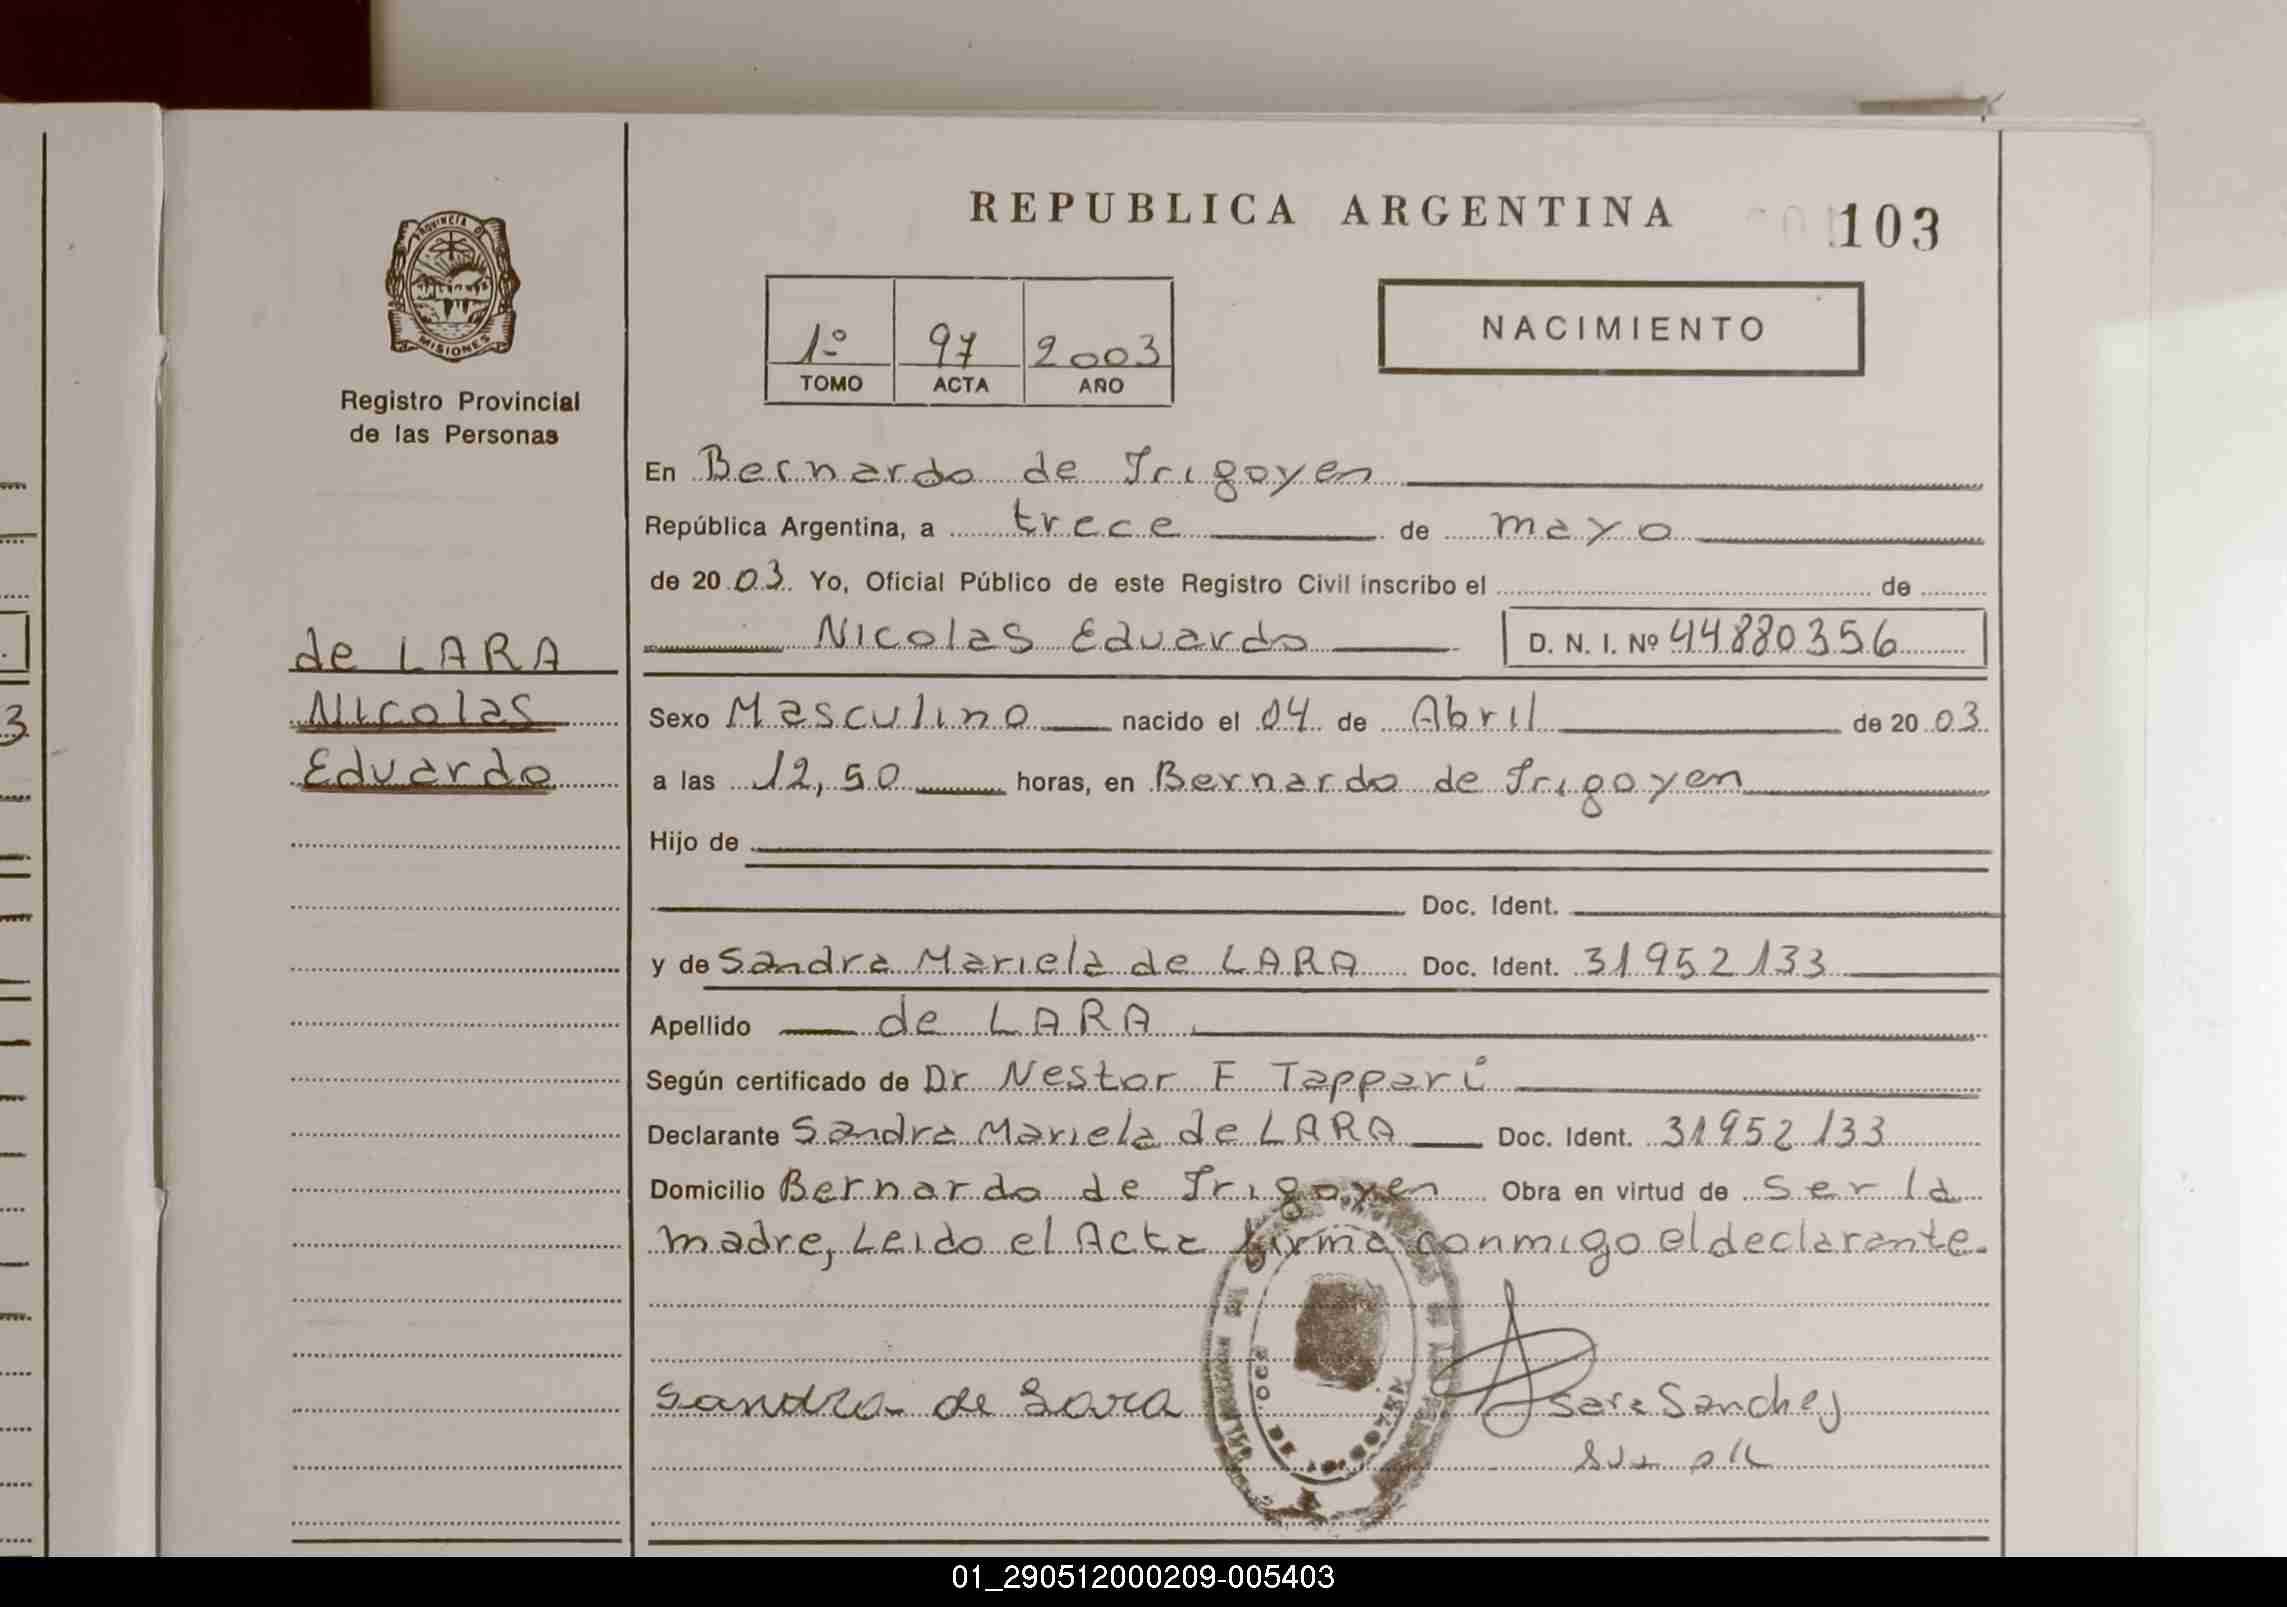 REPUBLICA ARGENTINA
103
PROVINCIA DE
MISIONES
Registro Provincial
de las Personas
1º 97 2003
TOMO ACTA AÑO
NACIMIENTO
En Bernardo de Irigoyen
República Argentina, a trece de mayo
de 20 03 Yo, Oficial Público de este Registro Civil inscribo el de
Nicolas Eduardo D. N. I. Nº 44880356
de LARA
Nicolas
Eduardo
3
Sexo Masculino nacido el 04 de Abril de 20 03
a las 12,50 horas, en Bernardo de Irigoyen
Hijo de
Doc. Ident.
y de Sandra Mariela de LARA Doc. Ident. 31952133
Apellido de LARA
Según certificado de Dr Nestor F Tappari
Declarante Sandra Mariela de LARA Doc. Ident. 31952133
Domicilio Bernardo de Irigoyen Obra en virtud de ser la
madre, Leido el Acta firma conmigo el declarante.
Sandra de Lara
Sara Sanchez
01_290512000209-005403